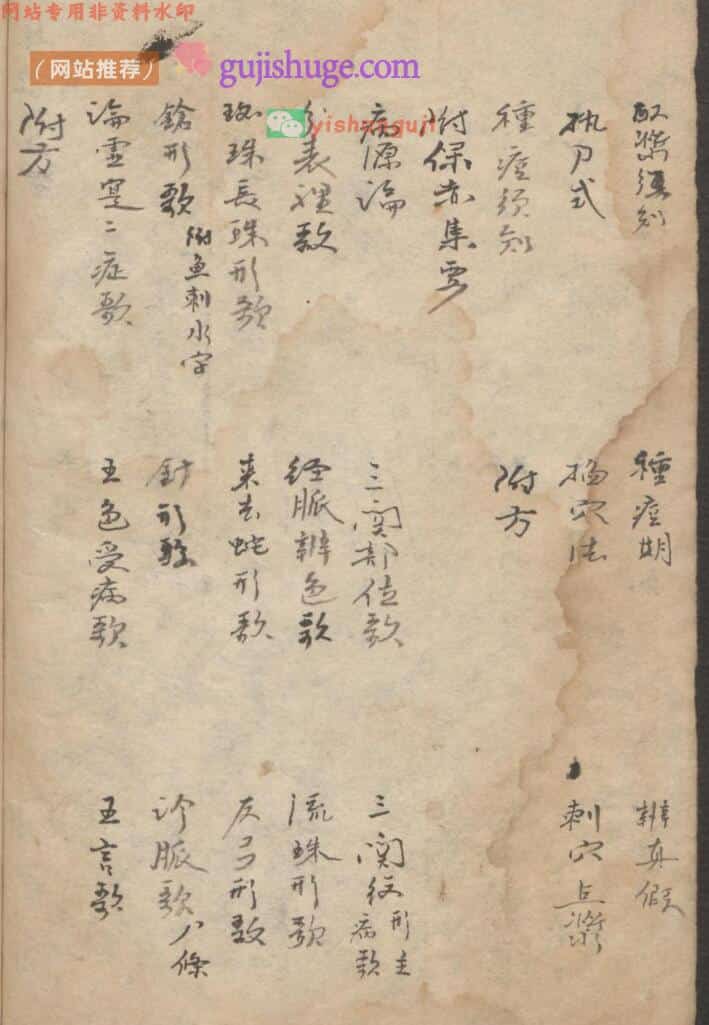 网站专用非资料水印
(网站推荐)
gujishuge.com
yishuguji
取漿須知 種痘期 辨真假
执刀式 揚穴法 刺穴点漿
種痘须知 附方
附保赤集要
病源論 三関部位歌 三関紋形主病歌
分表裡歌 经脈辨色歌 流珠形歌
環珠長珠形歌 来去蛇形歌 反弓形歌
鎗形歌 附魚刺水字 針形歌 診脈歌八條
論霊寔二症歌 五色受病歌 五言歌
附方